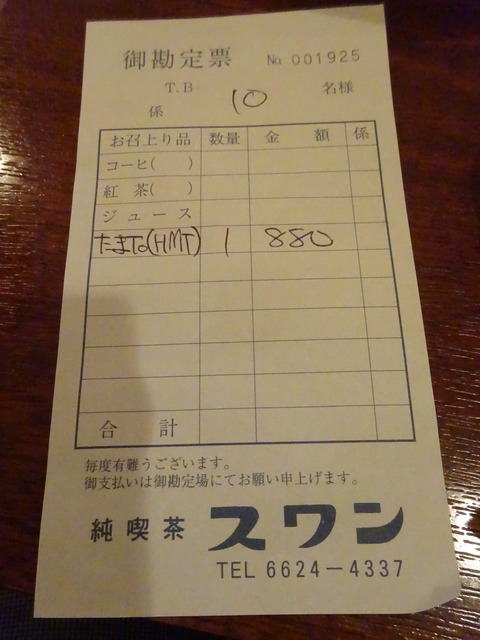 御勘定票 № 001925
T.B 10 名様
係
お召上り品 数量 金 額 係
コーヒ( )
紅 茶( )
ジュース
たまTo(HMT) 1 880
合 計
毎度有難うございます。
御支払いは御勘定場にてお願い申上げます。
純喫茶 スワン
TEL 6624-4337